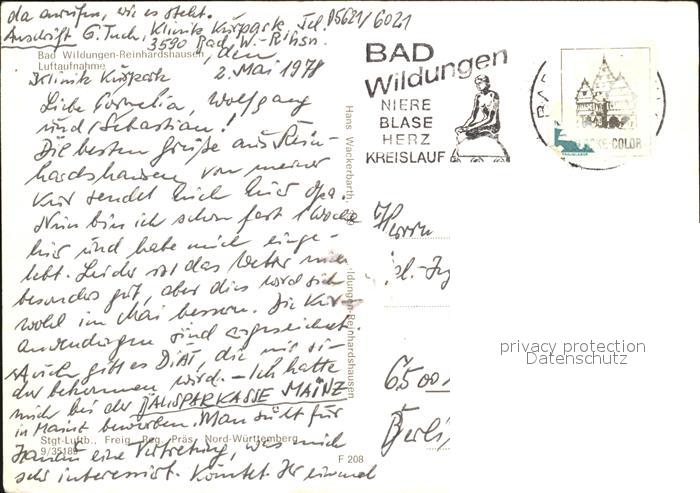 da anrufen, wie es steht.
Anschrift G. Tuch, Klinik Kurpark Tel. 05621/6021
3590 Bad W.-Rhsn.
Bad Wildungen-Reinhardshausen, den
Luftaufnahme
Klinik Kurpark 2. Mai 1978
Liebe Cornelia, Wolfgang
und Sebastian!
Die besten Grüße aus Rein-
hardshausen von meiner
Kur sendet Euch Euer Opa.
Nun bin ich schon fast 1 Woche
hier und habe mich einge-
lebt. Leider ist das Wetter nicht
besonders gut, aber dies wird sich
wohl im Mai bessern. Die Kur-
anwendungen sind ausgezeichnet.
Auch gibt es DIÄT, die mir
bekommen wird. - Ich hatte
mich bei der SPARKASSE MAINZ
in Mainz beworben. Man sucht für
eine Vertretung, was mich
sehr interessiert. Könntet Ihr einmal
Stgt-Luftb., Freig. Reg. Präs. Nord-Württemberg
9/35188
F 208
Hans Wackerbarth,
Wildungen-Reinhardshausen
BAD
Wildungen
NIERE
BLASE
HERZ
KREISLAUF
BA
KE-COLOR
Herrn
pl.-Ing
6500
privacy protection
Datenschutz